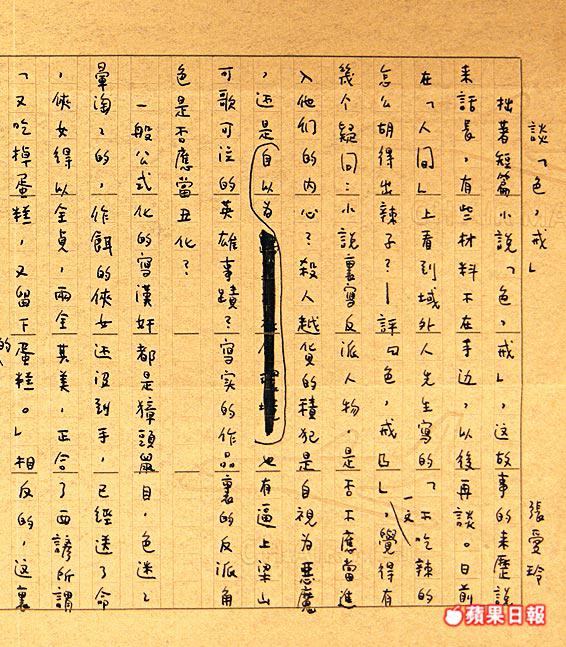 談「色，戒」 張愛玲
拙著短篇小說「色，戒」，這故事的来歷說
来話長，有些材料不在手边，以後再談。日前
在「人間」上看到域外人先生寫的「不吃辣的
怎么胡得出辣子？—評『色，戒』」一文，覺得有
幾个疑問：小說裏寫反派人物，是否不應當進
入他们的内心？殺人越貨的積犯是自視为惡魔
，还是自以为也有逼上梁山
可歌可泣的英雄事蹟？寫实的作品裏的反派角
色是否應當丑化？
一般公式化的寫漢奸都是獐頭鼠目，色迷〻
暈淘〻的，作餌的俠女还沒到手，已經送了命
，俠女得以全貞，兩全其美，正合了西諺所謂
「又吃掉蛋糕，又留下蛋糕。」相反的，這裏
的
蘋果日報